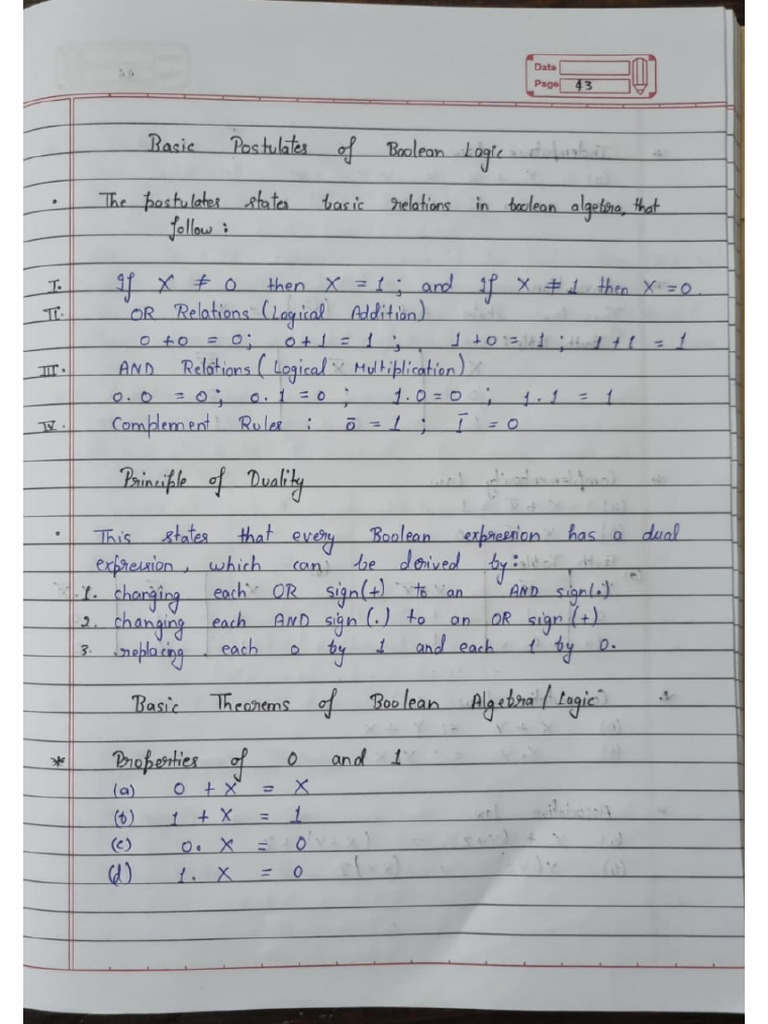 Date
Page 43
Basic Postulates of Boolean Logic
• The postulates states basic relations in boolean algebra, that
follow :
I. If X ≠ 0 then X = 1 ; and If X ≠ 1 then X = 0.
II. OR Relations (Logical Addition)
0 + 0 = 0; 0 + 1 = 1 ; 1 + 0 = 1 ; 1 + 1 = 1
III. AND Relations (Logical Multiplication)
0 . 0 = 0; 0 . 1 = 0 ; 1 . 0 = 0 ; 1 . 1 = 1
IV. Complement Rules : 0̅ = 1 ; 1̅ = 0
Principle of Duality
• This states that every Boolean expression has a dual
expression, which can be derived by :
1. changing each OR sign(+) to an AND sign(.)
2. changing each AND sign (.) to an OR sign (+)
3. replacing each 0 by 1 and each 1 by 0.
Basic Theorems of Boolean Algebra / Logic
* Properties of 0 and 1
(a) 0 + X = X
(b) 1 + X = 1
(c) 0 . X = 0
(d) 1 . X = 0